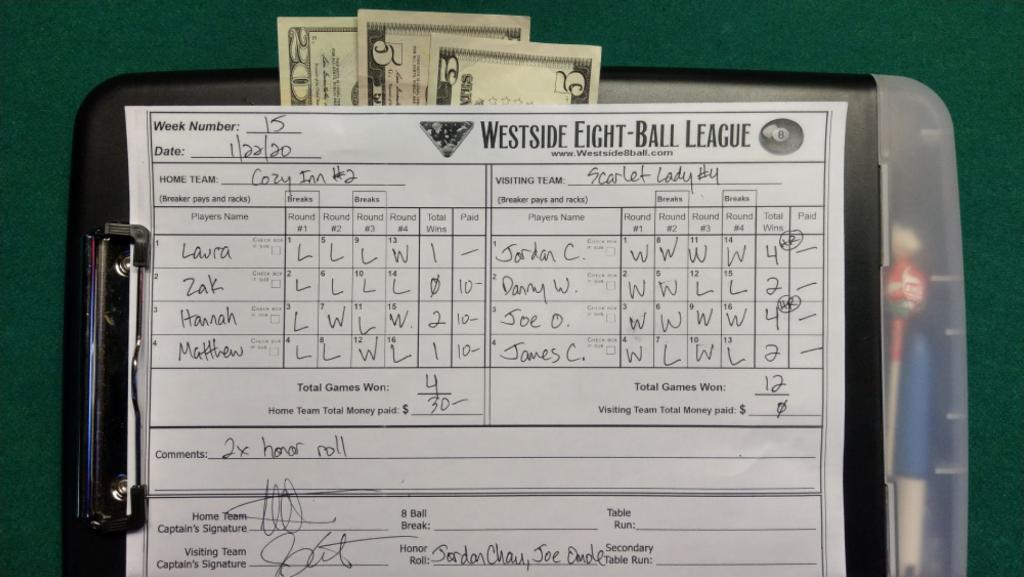 20 5 5
Week Number: 15
Date: 1/22/20
WESTSIDE EIGHT-BALL LEAGUE 8
www.Westside8ball.com
HOME TEAM: Cozy Inn #2 VISITING TEAM: Scarlet Lady #4
(Breaker pays and racks) Breaks Breaks (Breaker pays and racks) Breaks Breaks
Players Name Round #1 Round #2 Round #3 Round #4 Total Wins Paid Players Name Round #1 Round #2 Round #3 Round #4 Total Wins Paid
1 Laura CHECK BOX IF SUB 1 L 5 L 9 L 13 W 1 — 1 Jordan C. CHECK BOX IF SUB 1 W 8 W 11 W 14 W 4 HR —
2 Zak CHECK BOX IF SUB 2 L 6 L 10 L 14 L 0 10- 2 Danny W. CHECK BOX IF SUB 2 W 5 W 12 L 15 L 2 —
3 Hannah CHECK BOX IF SUB 3 L 7 W 11 L 15 W 2 10- 3 Joe O. CHECK BOX IF SUB 3 W 6 W 9 W 16 W 4 HR —
4 Matthew CHECK BOX IF SUB 4 L 8 L 12 W 16 L 1 10- 4 James C. CHECK BOX IF SUB 4 W 7 L 10 W 13 L 2 —
Total Games Won: 4 Total Games Won: 12
Home Team Total Money paid: $ 30- Visiting Team Total Money paid: $ 0
Comments: 2x honor roll
Home Team Captain's Signature 8 Ball Break: Table Run:
Visiting Team Captain's Signature Honor Roll: Jordan Chau, Joe Onde Secondary Table Run: